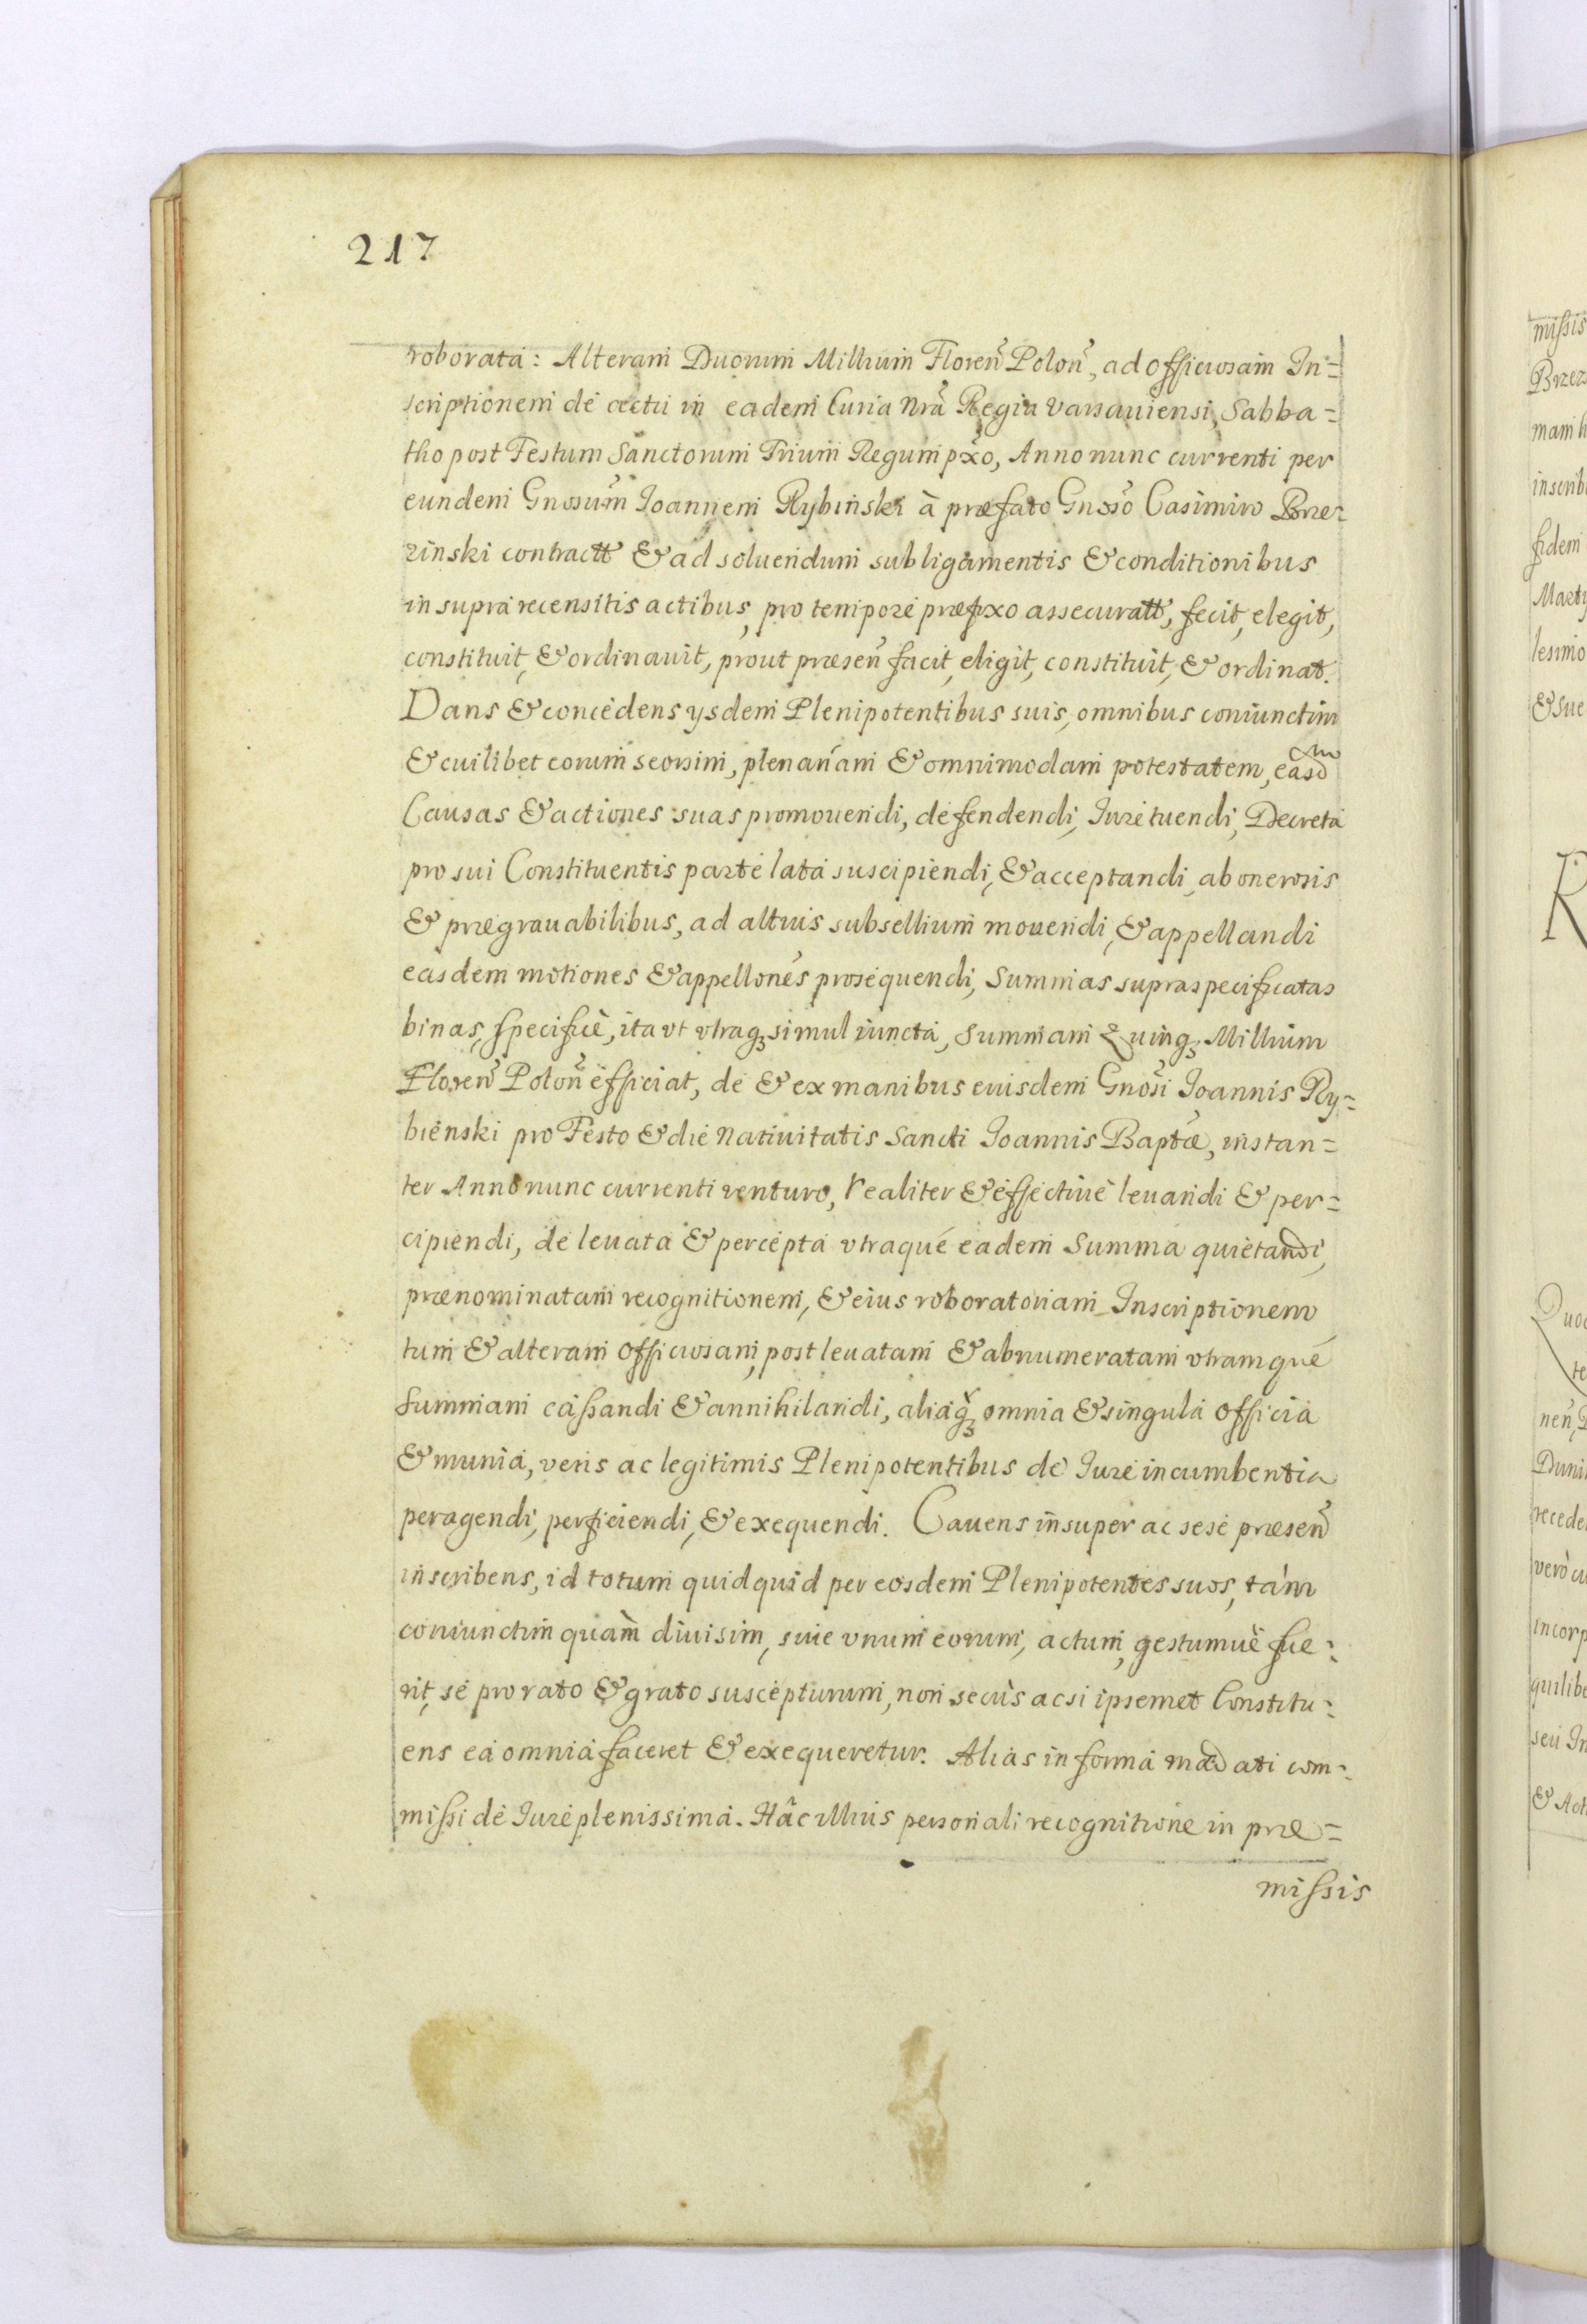 217
roborata: Alteram Duorum Millium Floren̄ Polon̄, ad officiosam In=
scriptionem de actu in eadem Curia Nrã Regia Varsauiensi, Sabba=
tho post Festum Sanctorum Trium Regum pxõ, Anno nunc currenti per
eundem Gnosum̃ Ioannem Rybinski à præfato Gnosõ Casimiro Brze=
zinski contractt̃ & ad soluendum sub ligamentis & conditionibus
in supra recensitis actibus, pro tempore præfixo assecuratt̃, fecit, elegit,
constituit, & ordinauit, prout præsen̄ facit, eligit, constituit, & ordinat.
Dans & concedens ysdem Plenipotentibus suis, omnibus coniunctim
& cuilibet eorum seorsim, plenariam & omnimodam potestatem, easd̃
Causas & actiones suas promouendi, defendendi, Iure tuendi, Decreta
pro sui Constituentis parte lata suscipiendi, & acceptandi, ab onerosis
& prægrauabilibus, ad altius subsellium mouendi, & appellandi
easdem motiones & appellonẽs prosequendi, Summas supraspecificatas
binas, specificè, ita vt vtraqꝫ simul iuncta, Summam Quinqꝫ Millium
Floren̄ Polon̄ efficiat, de & ex manibus euisdem Gnosĩ Ioannis Ry=
bienski pro Festo & die Natiuitatis Sancti Ioannis Baptæ̃, instan=
ter Anno nunc currenti venturo, realiter & effectiuè leuandi & per=
cipiendi, de leuata & percepta vtraqué eadem Summa quietandi,
prænominatam recognitionem, & eius roboratoriam Inscriptionem
tum & alteram officiosam, post leuatam & abnumeratam vtramqué
Summam cassandi & annihilandi, aliaqꝫ omnia & singula officia
& munia, veris ac legitimis Plenipotentibus de Iure incumbentia
peragendi, perficiendi, & exequendi. Cauens insuper ac sese præsen̄
inscribens, id totum quidquid per eosdem Plenipotentes suos, tàm
coniunctim quàm diuisim, siue vnum eorum, actum, gestumuè fue=
rit, se pro rato & grato suscepturum, non secùs ac si ipsemet Constitu=
ens ea omnia faceret & exequeretur. Alias in forma mãdati com=
missi de Iure plenissima. Hâc illius personali recognitione in præ=
missis